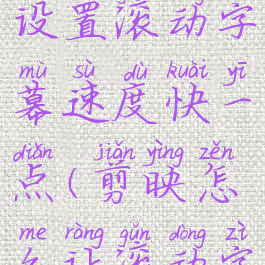 设置滚动字
mù sù dù kuài yī
幕速度快一
diǎn jiǎn yìng zěn
点(剪映怎
me ràng gǔn dòng zì
么让滚动字